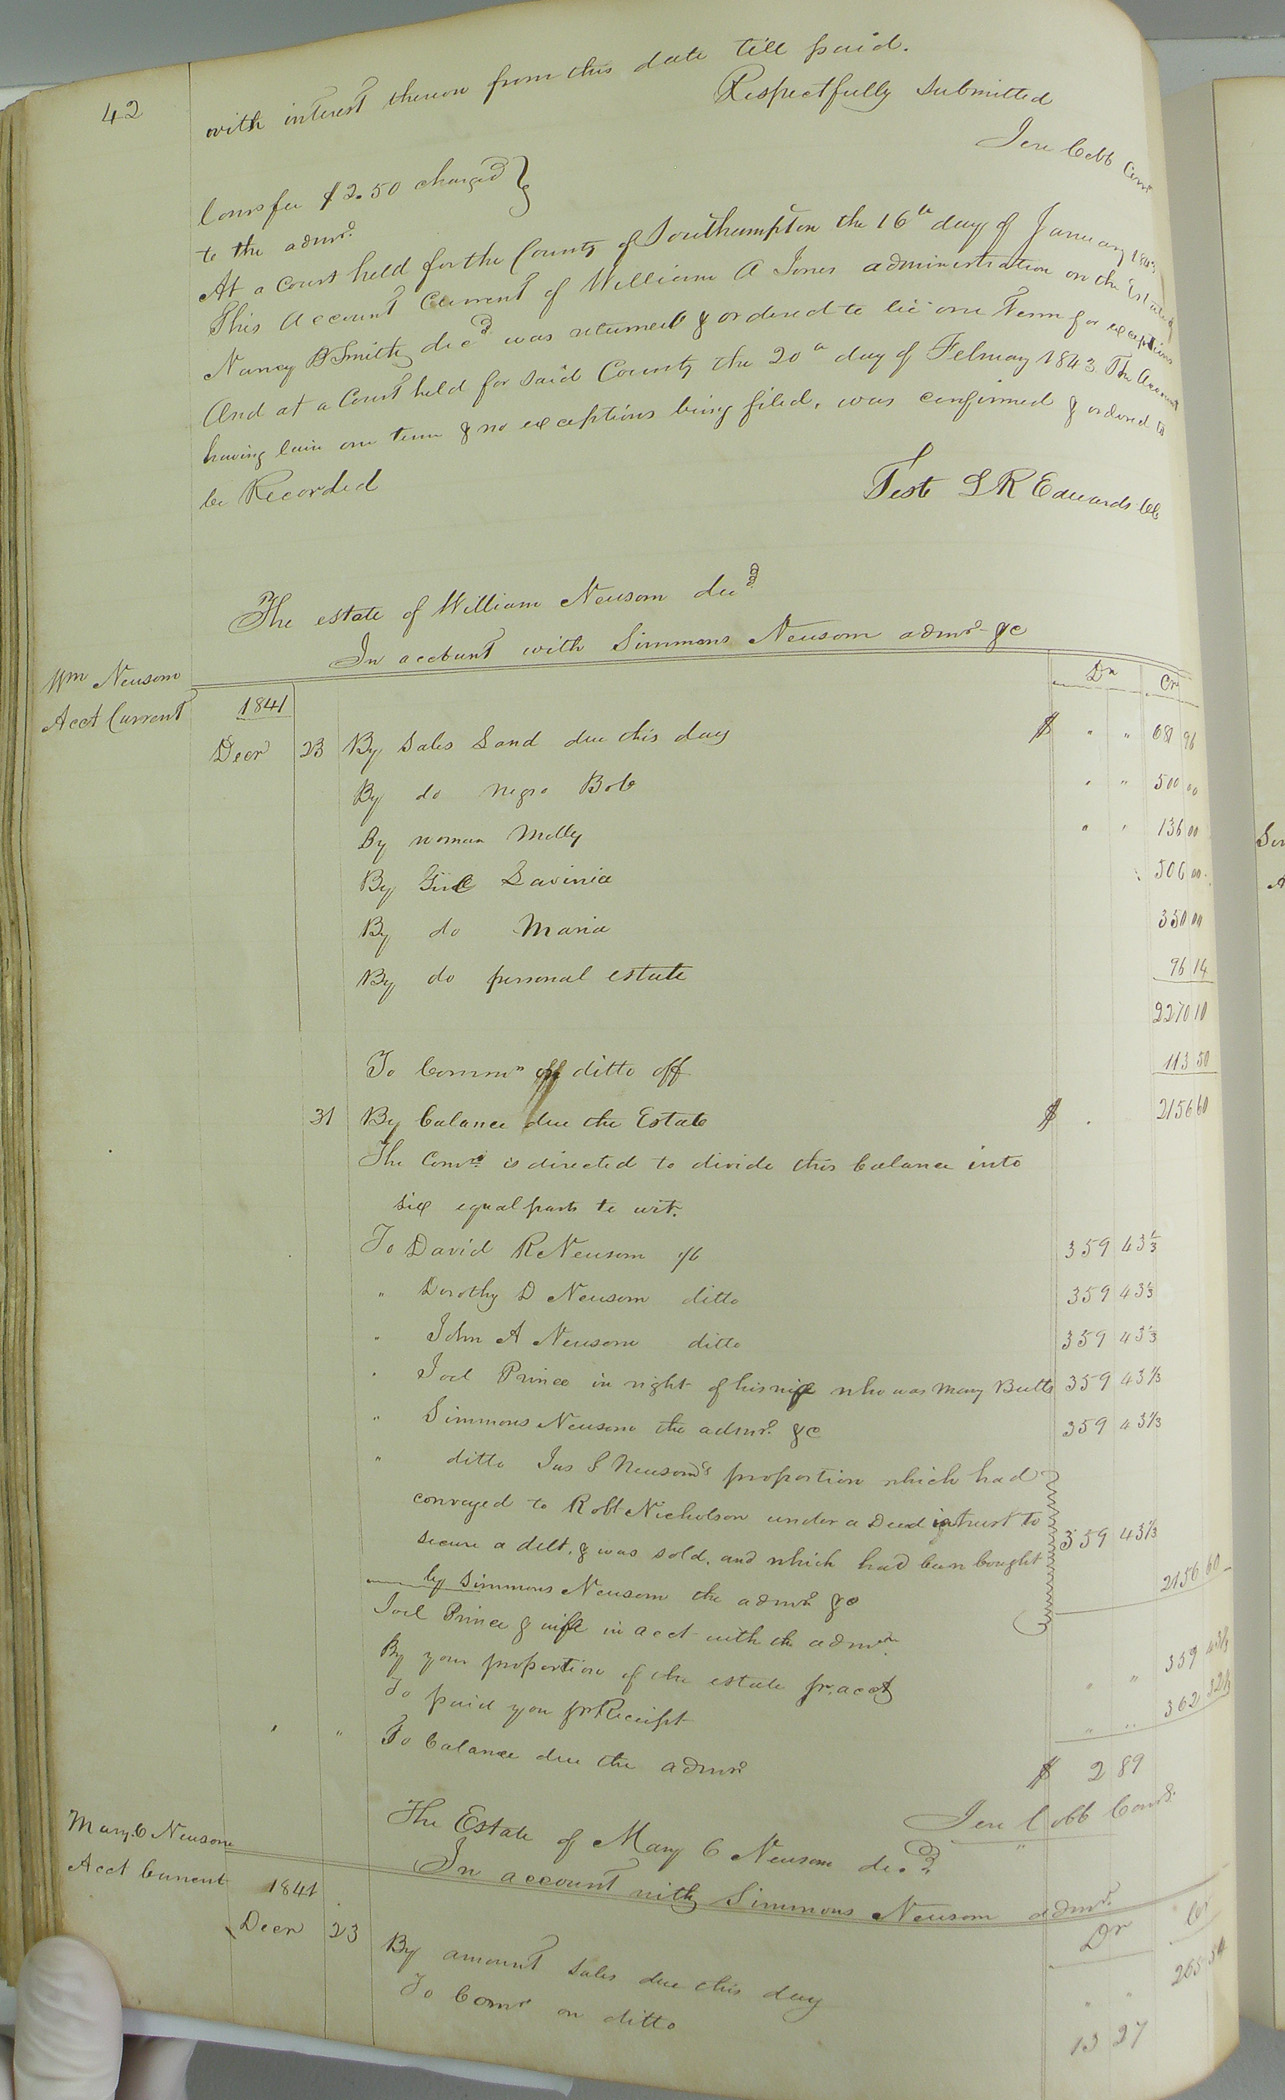 42
with interest thereon from this date till paid.
Respectfully Submitted
Jere Cobb Com
Comrs fee $2.50 charged
to the admr.
At a Court held for the County of Southampton the 16th day of January 1843
This Account Current of William A Jones administration on the Estate of
Nancy B Smith decd was returned & ordered to lie one Term for exceptions
And at a Court held for said County the 20th day of February 1843. The Account
having lain one term & no exceptions being filed, was confirmed & ordered to
be Recorded
Teste L R Edwards CC
The estate of William Newsom decd
In account with Simmons Newsom admr &c
Wm Newsom
Acct Current
Dr Cr
1841
Decr 23 By Sales Land due this day $ " " 681 96
By do negro Bob " " 500 00
By woman Milly " " 136 00
By Girl Lavinia 506 00
By do Maria 350 00
By do personal estate 96 14
2270 10
To Commn off ditto off 113 50
31 By balance due the Estate $ 2156 60
The Comr is directed to divide this balance into
six equal parts to wit.
To David R Newsom 1/6 359 43 1/3
" Dorothy D Newsom ditto 359 43 1/3
" John A Newsom ditto 359 43 1/3
" Joel Prince in right of his wife who was Mary Butts 359 43 1/3
" Simmons Newsom the admr. &c 359 43 1/3
" ditto Jas S Newsom's proportion which had
conveyed to Robt Nicholson under a Deed in trust to
secure a debt, & was sold, and which had been bought 359 43 1/3
by Simmons Newsom the admr &c 2156 60
Joel Prince & wife in acct with the admr
By your proportion of the estate pr. acct " " 359 43 1/3
To paid you pr Receipt " " 362 32 1/3
" " To balance due the admr $ 2 89
Jere Cobb Comr.
The Estate of Mary C Newsom decd.
In account with Simmons Newsom admr.
Mary C Newsom
Acct Current
Dr Cr
1841
Decr 23 By amount sales due this day " " 265 54
To Comr on ditto 13 27